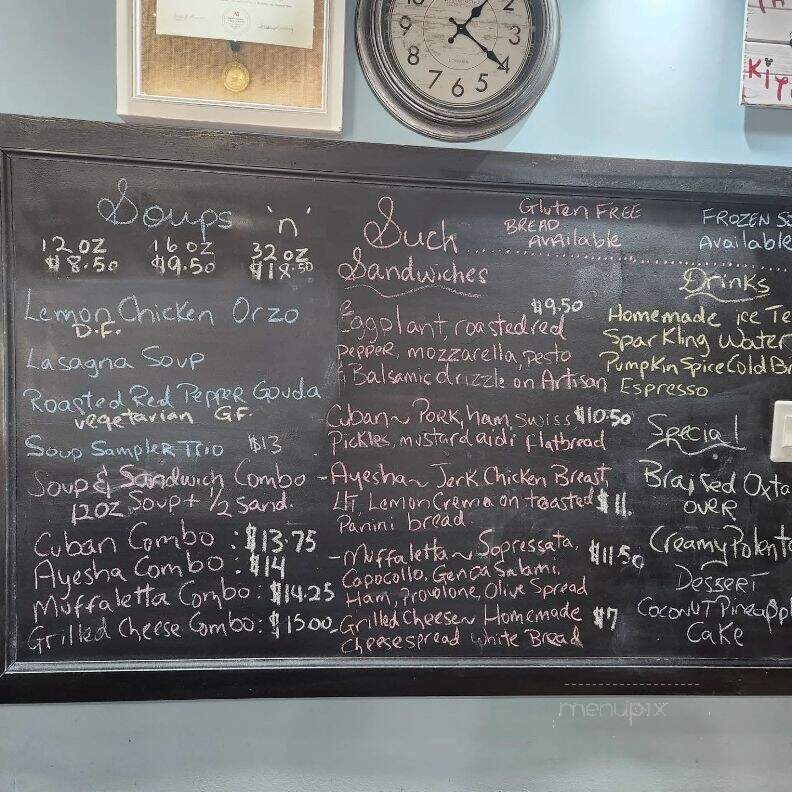 Soups 'n'
12 oz 16 oz 32 oz
$8.50 $9.50 $18.50
Lemon Chicken Orzo
D.F.
Lasagna Soup
Roasted Red Pepper Gouda
vegetarian GF.
Soup Sampler Trio $13
Soup & Sandwich Combo
12oz Soup + 1/2 Sand.
Cuban Combo : $13.75
Ayesha Combo : $14
Muffaletta Combo : $14.25
Grilled Cheese Combo : $15.00
Such
Gluten FREE
BREAD
Available
Sandwiches
$9.50
Eggplant, roasted red
pepper, mozzarella, pesto
& Balsamic drizzle on Artisan
Cuban ~ Pork, ham, swiss $10.50
Pickles, mustard aioli flatbread
- Ayesha ~ Jerk Chicken Breast,
LT, Lemon Crema on toasted $11.
Panini bread
- Muffaletta ~ Sopressata, $11.50
Capocollo, Genoa Salami,
Ham, Provolone, Olive Spread
- Grilled Cheese ~ Homemade $7
cheese spread white Bread
FROZEN
Available
Drinks
Homemade ice Te
Sparkling Water
Pumpkin Spice Cold Br
Espresso
Special
Braised Oxta
OVER
Creamy Polent
Dessert
Coconut Pineappl
Cake
10 2
9 3
8 4
7 6 5
LONDON
Ki
menupix